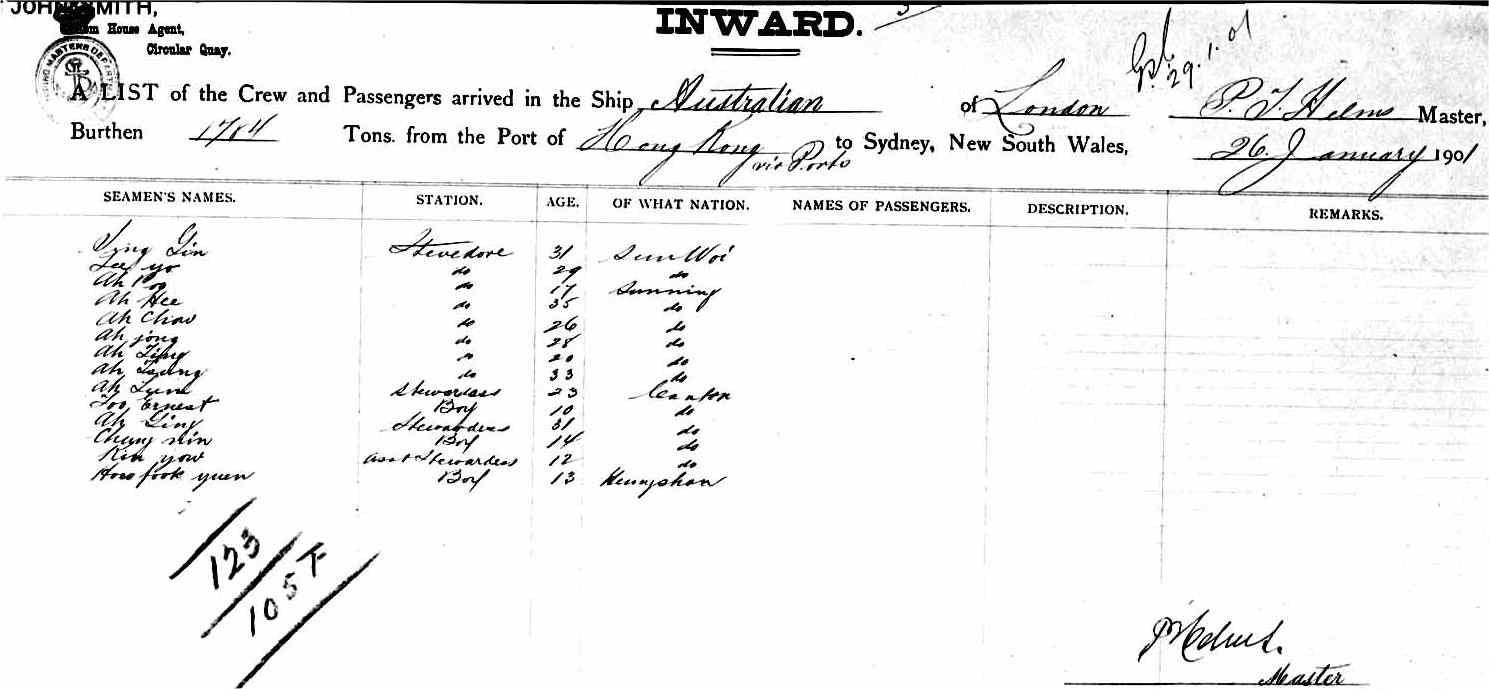 JOHN SMITH,
INWARD.
House Agent,
Circular Quay.
29.1.01
A LIST of the Crew and Passengers arrived in the Ship Australian of London P. T. Helms Master,
Burthen 1784 Tons. from the Port of Hong Kong via Ports to Sydney, New South Wales, 26. January 1901
SEAMEN'S NAMES. STATION. AGE. OF WHAT NATION. NAMES OF PASSENGERS. DESCRIPTION. REMARKS.
Stevedore 31 Sun Woi
Lee yo do 29 do
Ah do 17 Sunning
Ah Hee do 35 do
Ah Chow do 26 do
Ah jong do 28 do
Ah 20 do
Ah do 33 do
Ah Lum Stewardess 23 Canton
Foo Ernest Boy 10 do
Ah Ging Stewardess 31 do
Chung nin Boy 14 do
Kin yow asst Stewardess 12 do
How fook yuen Boy 13 Heungshan
123
105
Master